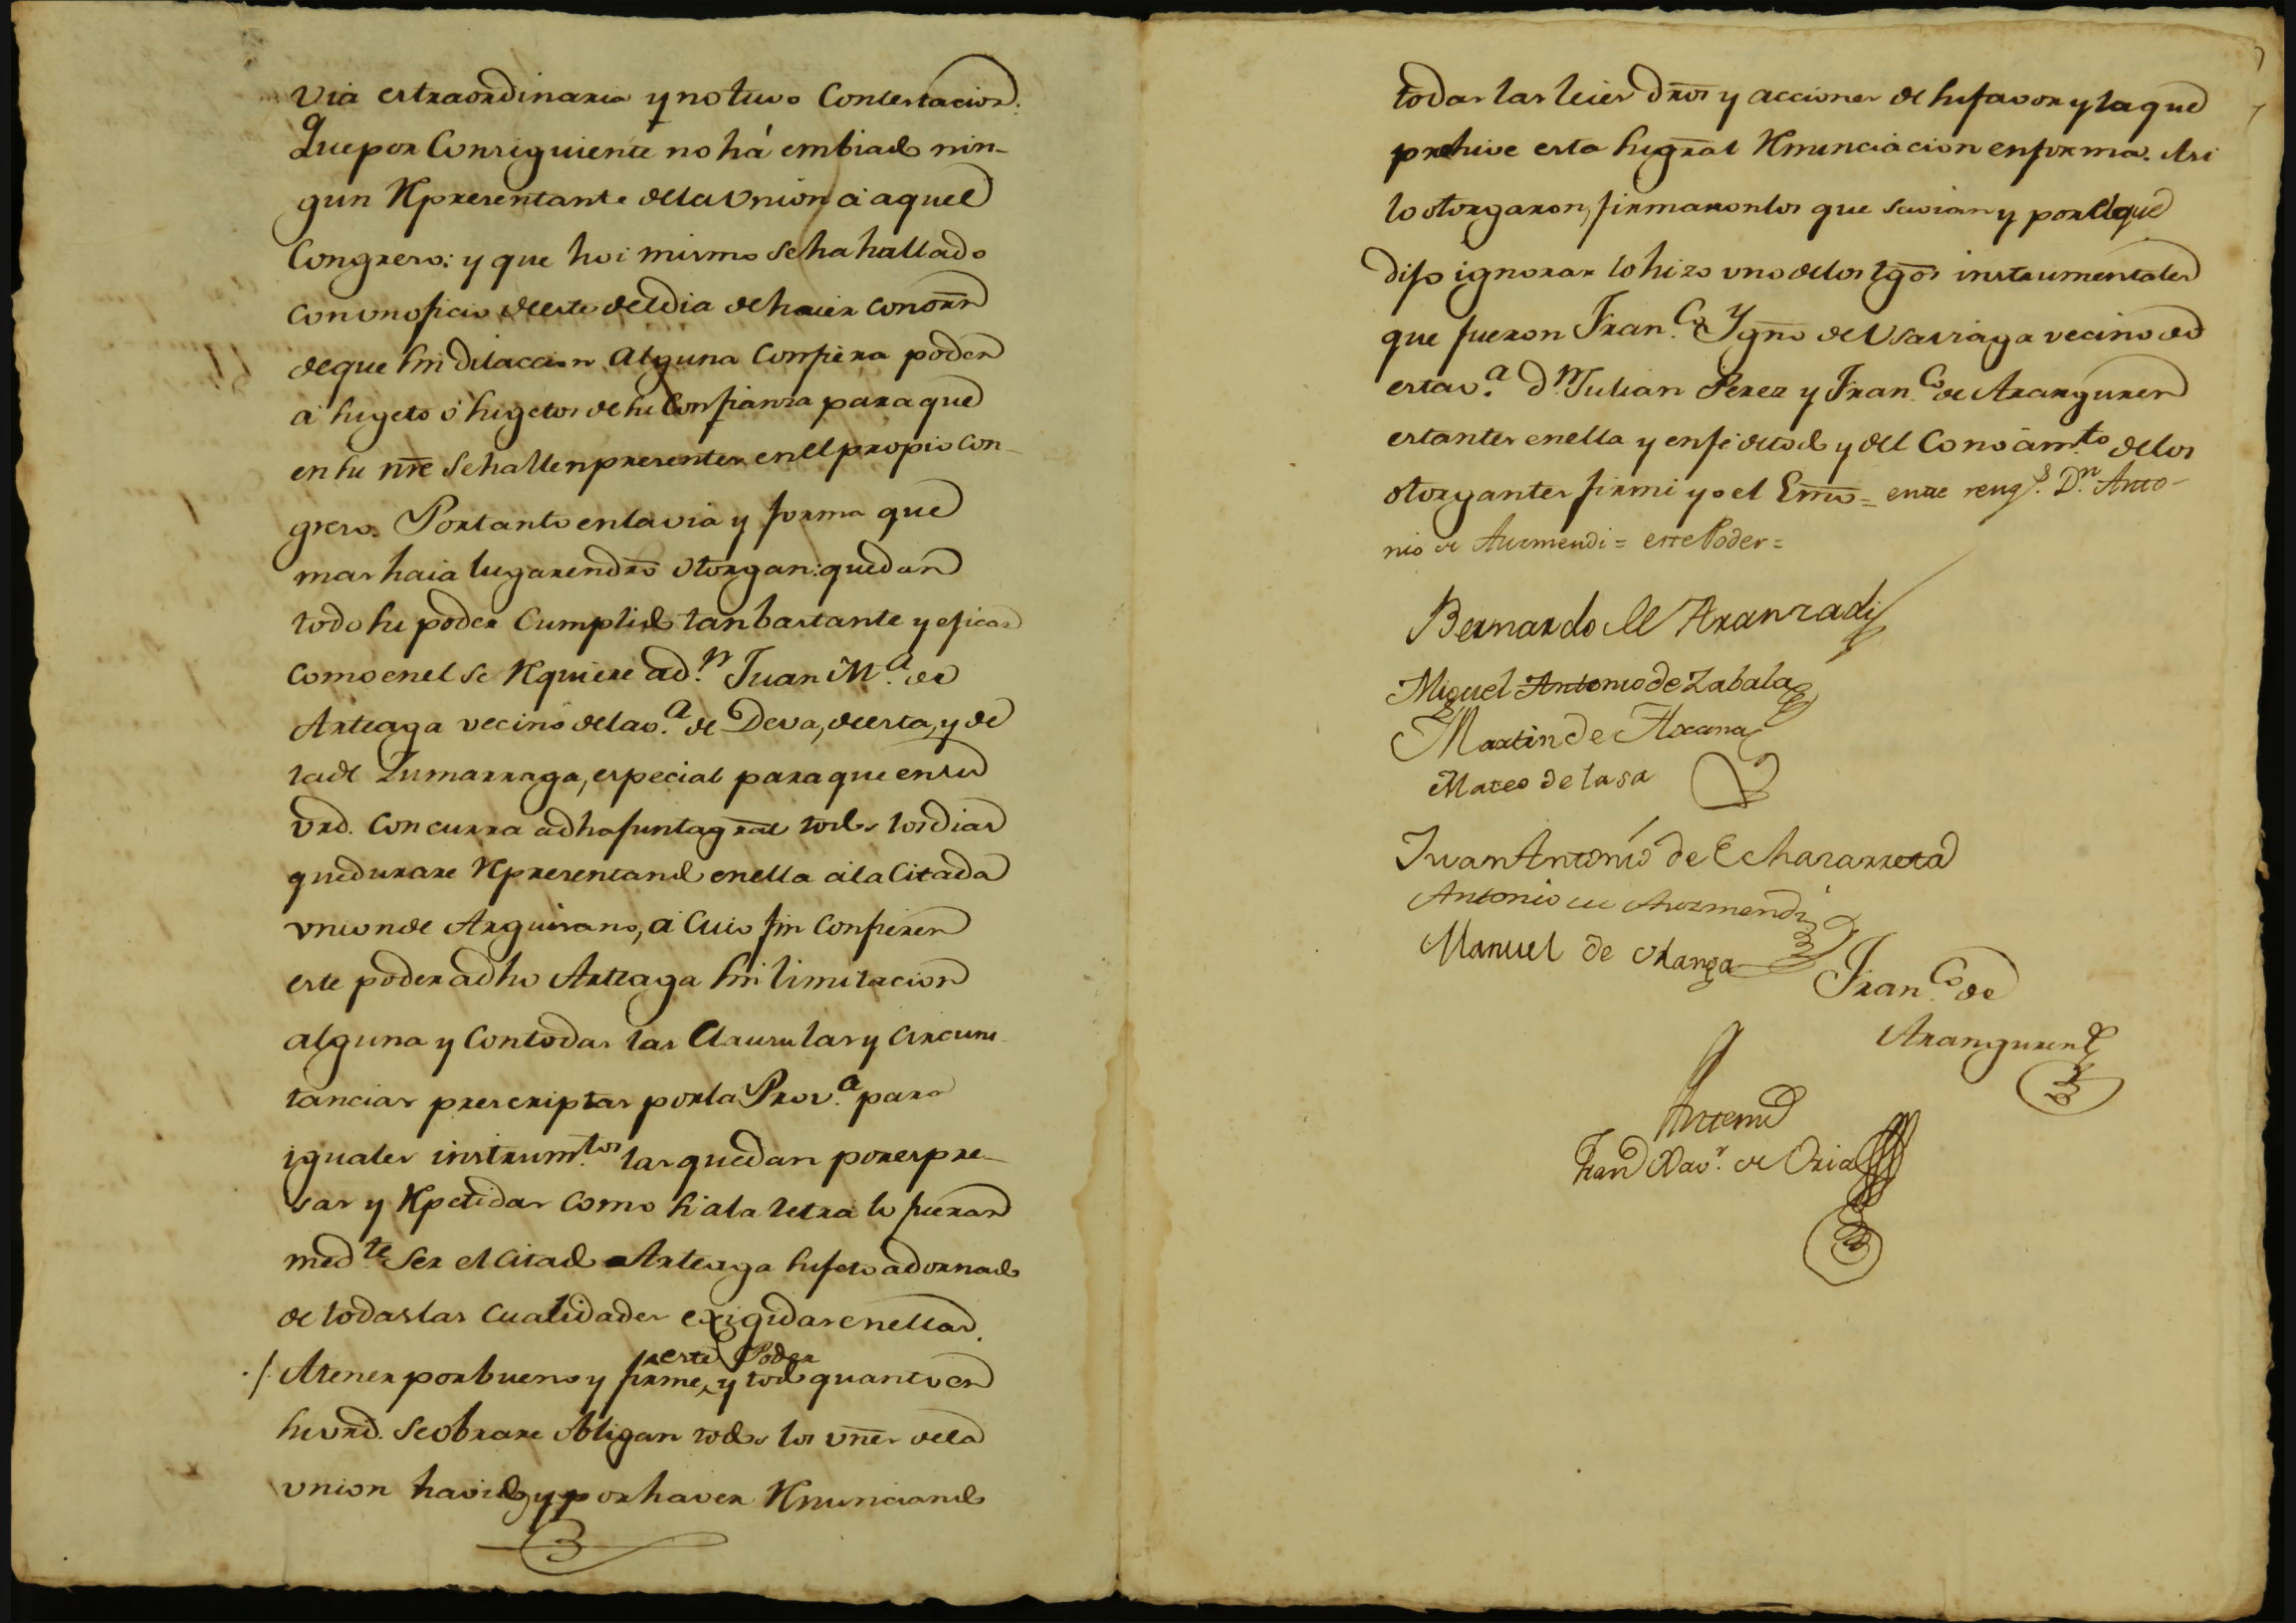 via extraordinaria y no tuvo Contestacion.
Que por Consiguiente no há embiado nin-
gun Representante de la Union á aquel
Congreso: y que hoi mismo se ha hallado
con un oficio de este del dia de haier con orñ
de que sin dilaccion alguna Confiera poder
á sugeto ó sugetos de su Confianza para que
en su nrê se hallen presentes en el propio Con-
greso. Por tanto en la via y forma que
mas haia lugar en dr̃o otorgan: que dan
todo su poder Cumplido tan bastante y eficaz
como en el se Requiere a d.n Juan M.a de
Arteaga vecino de la v.a de Deva, de esta, y de
la de Zumarraga, especial para que en su
vrd. concurra a dha junta gr̃al todos los dias
que durare Representando en ella á la Citada
union de Arguisano, á cuio fin Confieren
este poder a dho Arteaga sin limitacion
alguna y Con todas las Clausulas y Circuns-
tancias prescriptas por la Prov.a para
iguales instrum.tos las que dan por espre-
sas y Repetidas como si a la letra lo fueran
med.te ser el citado Arteaga sujeto adornado
de todas las cualidades exigidas en ellas.
este Poder
./. A tener por bueno y firme, y todo quanto en
su vrd. se obrare obligan todos los vñes de la
union havidos y por haver Renunciando
todas las leies dr̃os y acciones de su favor y la que
prohive esta su gr̃al Renunciacion en forma. Asi
lo otorgaron, firmaron los que savian y por el que
dijo ignorar lo hizo uno de los tgõs instrumentales
que fueron Fran.co Ygnõ de Usarraga vecino de
esta v.a d.n Julian Perez y Fran.co de Aranguren
estantes en ella y en fe de todo y del Conocim.to de los
otorgantes firmé yo el Essno = entre reng.s D.n Anto-
nio de Ausmendi = este Poder =
Bernardo de Aranzadi
Miguel Antonio de Zabala
Martin de Arana
Mateo de lasa
Juan Antonio de Echazarreta
Antonio de Ausmendi
Manuel de Olanga
Fran.co de
Aranguren
Antemi
Fran Xav.r de Oria